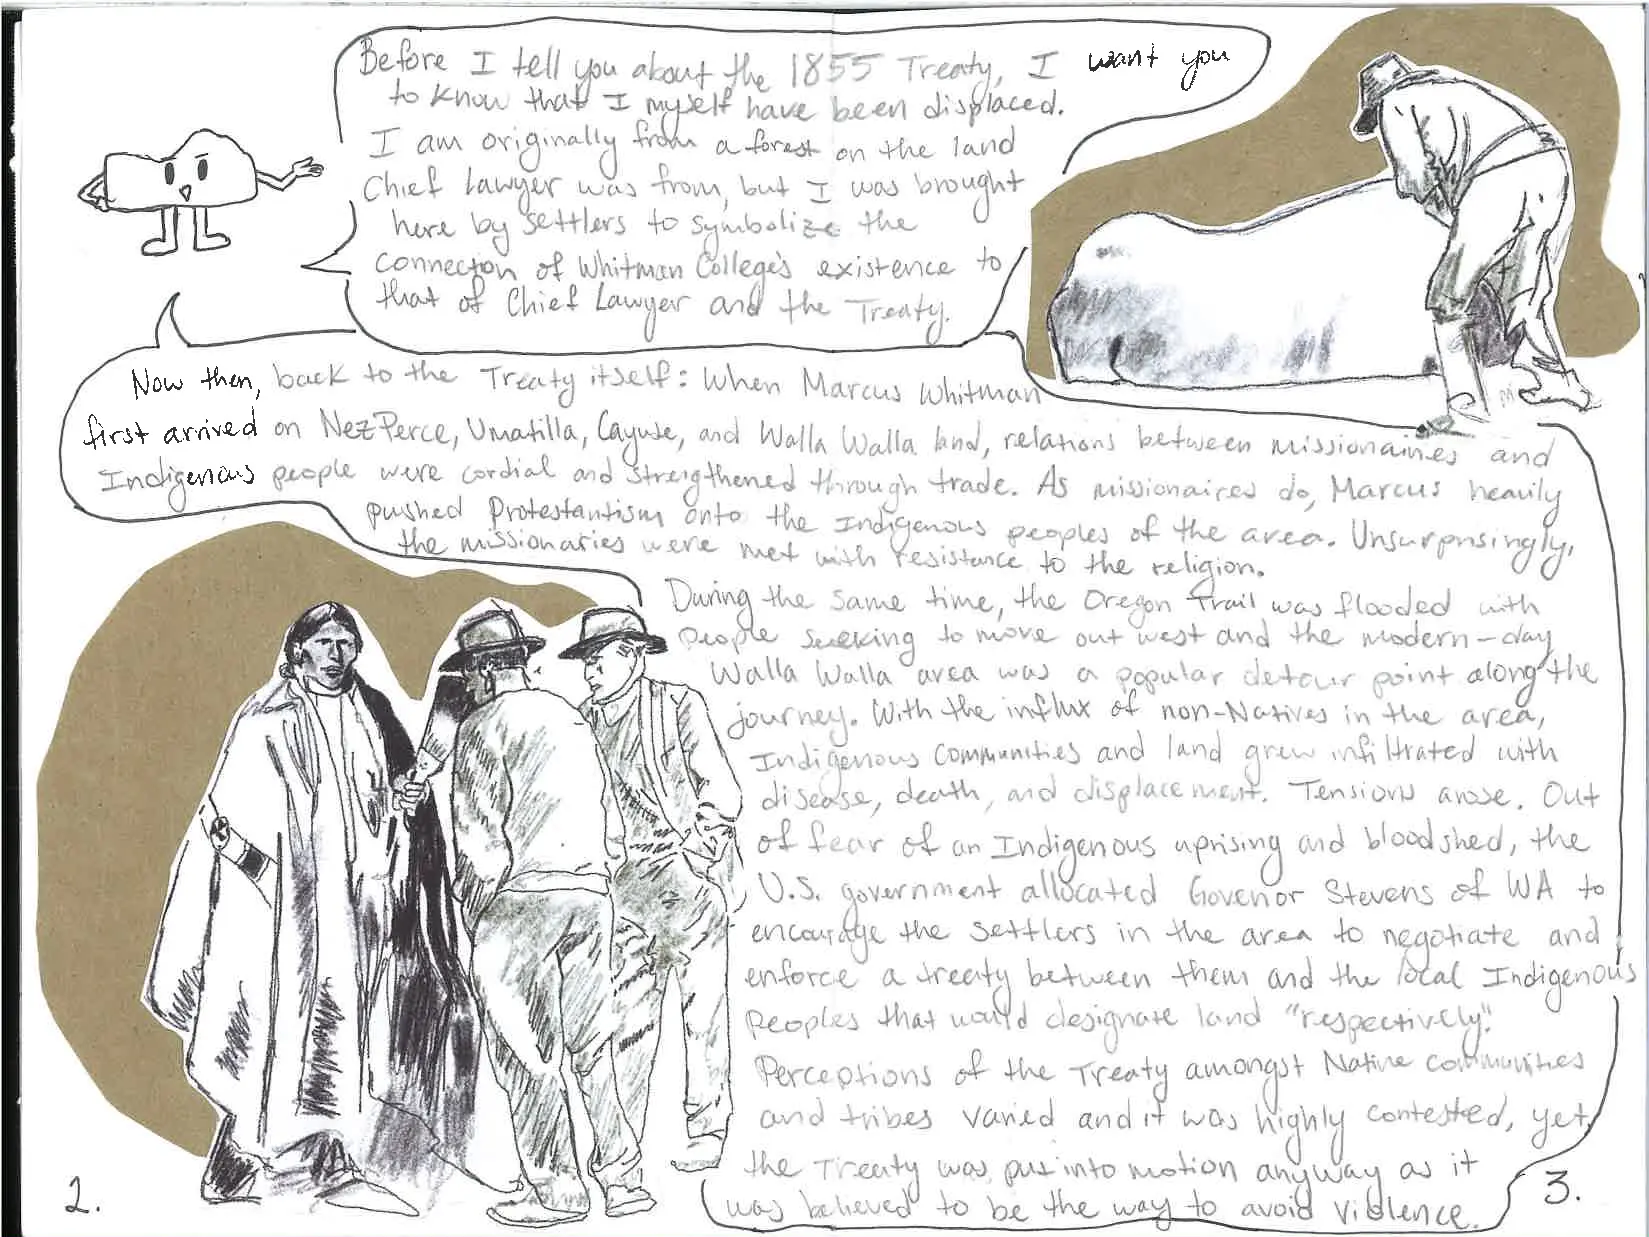 Before I tell you about the 1855 Treaty, I want you
to know that I myself have been displaced.
I am originally from a forest on the land
Chief Lawyer was from, but I was brought
here by settlers to symbolize the
connection of Whitman College's existence to
that of Chief Lawyer and the Treaty.
Now then, back to the Treaty itself: When Marcus Whitman
first arrived on Nez Perce, Umatilla, Cayuse, and Walla Walla land, relations between missionairies and
Indigenous people were cordial and strengthened through trade. As missionaires do, Marcus heavily
pushed Protestantism onto the Indigenous peoples of the area. Unsurprisingly,
the missionaries were met with resistance to the religion.
During the same time, the Oregon Trail was flooded with
people seeking to move out west and the modern-day
Walla Walla area was a popular detour point along the
journey. With the influx of non-Natives in the area,
Indigenous communities and land grew infiltrated with
disease, death, and displacement. Tensions arose. Out
of fear of an Indigenous uprising and bloodshed, the
U.S. government allocated Govenor Stevens of WA to
encourage the settlers in the area to negotiate and
enforce a treaty between them and the local Indigenous
Peoples that would designate land "respectively".
Perceptions of the Treaty amongst Native communities
and tribes varied and it was highly contested, yet,
the Treaty was put into motion anyway as it
was believed to be the way to avoid violence.
2.
3.